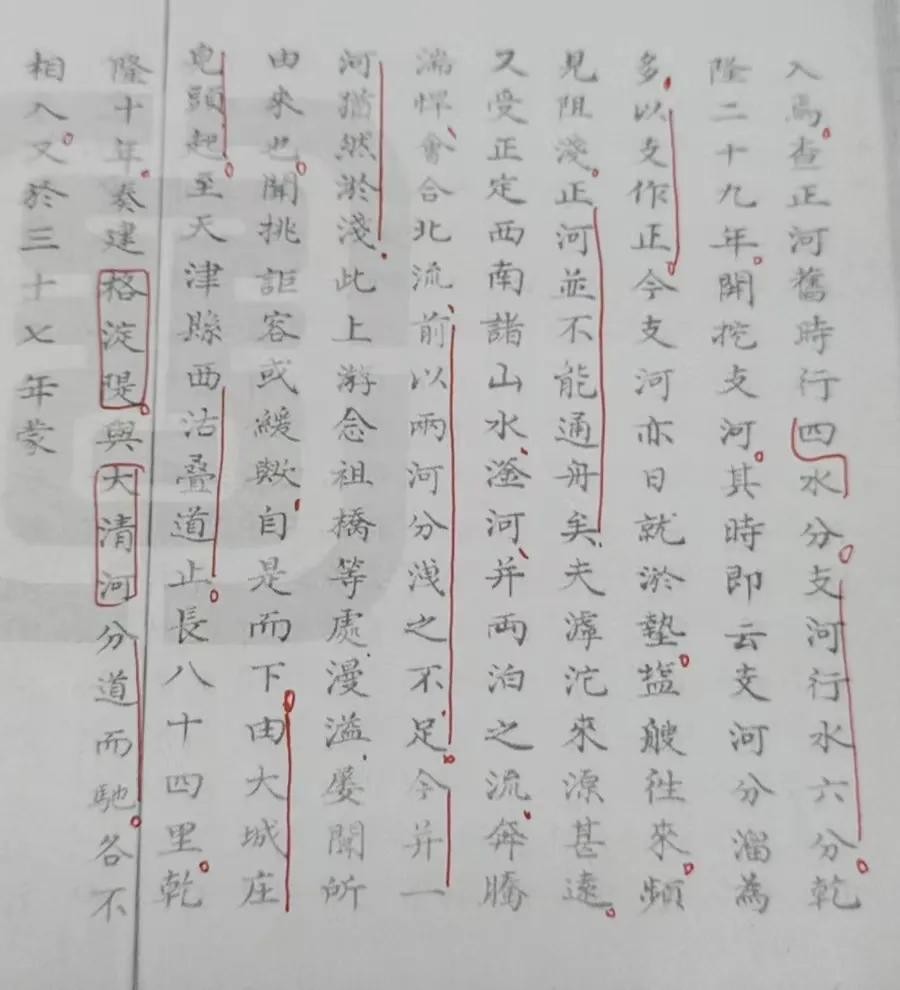 入焉查正河舊時行四水分支河行水六分乾
隆二十九年開挖支河其時即云支河分溜為
多以支作正今支河亦日就淤墊盐艘往來頻
見阻淺正河並不能通舟矣夫滹沱來源甚遠
又受正定西南諸山水滏河并両泊之流奔騰
湍悍會合北流前以兩河分洩之不足今并一
河猶然淤淺此上游念祖橋等處漫溢屡聞所
由來也開挑詎容或緩歟自是而下由大城庄
兒頭起至天津縣西沽疊道止長八十四里乾
隆十年奏建格淀隄與大清河分道而馳各不
相入又於三十七年蒙